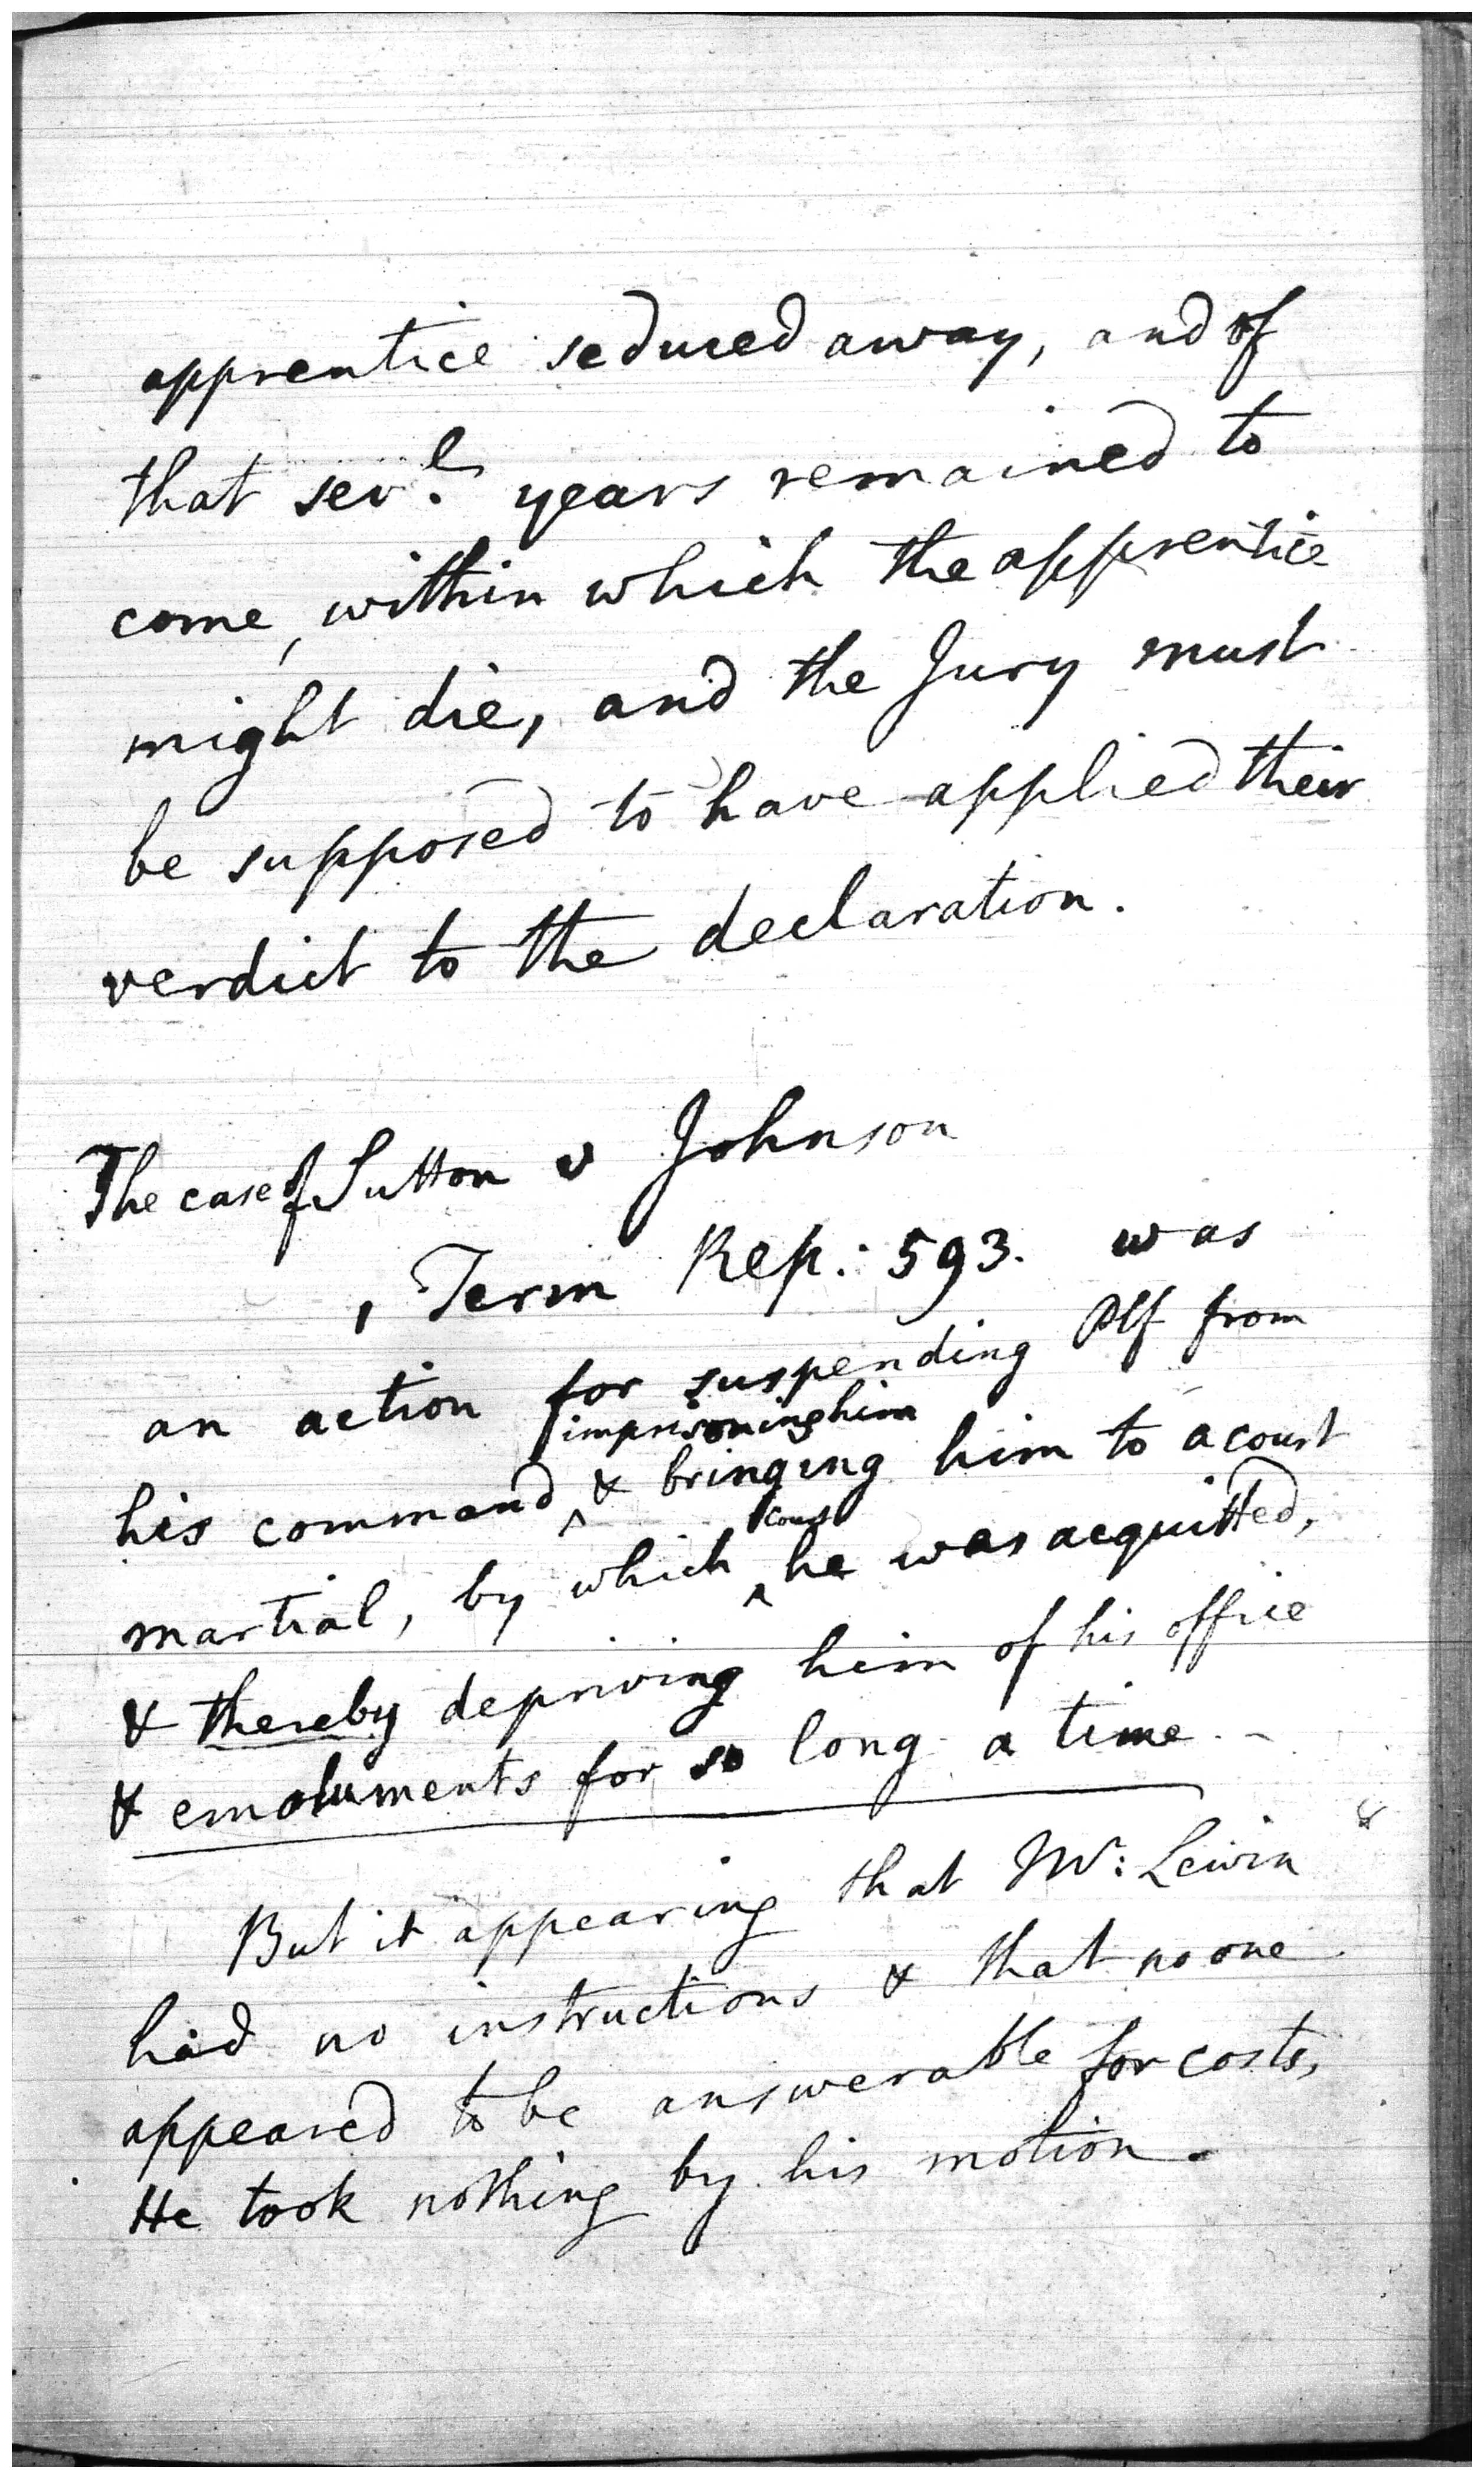 apprentice seduced away, and of
that sev.l years remained to
come, within which the apprentice
might die, and the Jury must
be supposed to have applied their
verdict to the declaration.
The case of Sutton v Johnson
1 Term Rep: 593. was
an action for suspending Plf from
imprisoning him
his command ^ & bringing him to a court
court
martial, by which ^ he was acquitted,
& thereby depriving him of his office
& emoluments for so long a time -
But it appearing that Mr: Lewin &
had no instructions & that no one
appeared to be answerable for costs,
He took nothing by his motion.